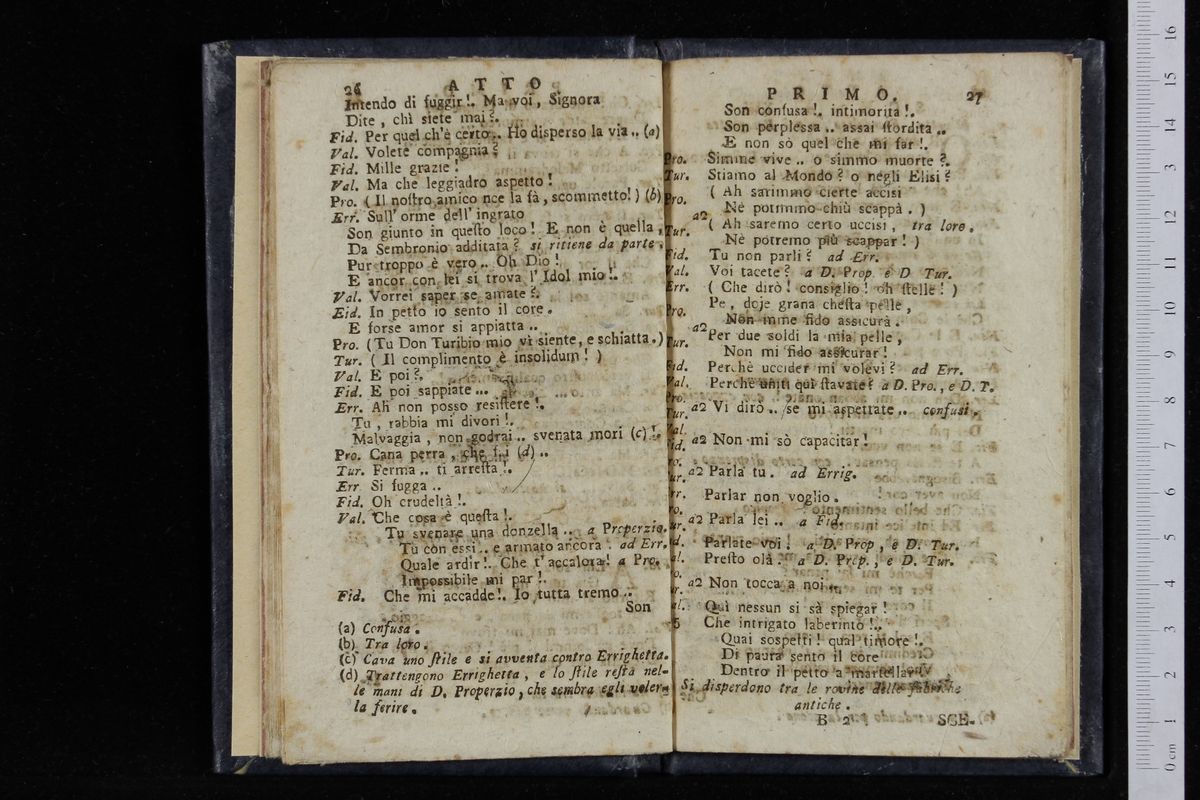 26 ATTO
Intendo di fuggir!. Ma voi, Signora
Dite, chì siete mai?.
Fid. Per quel ch'è certo.. Ho disperso la via.. (a)
Val. Volete compagnia?
Fid. Mille grazie!
Val. Ma che leggiadro aspetto!
Pro. (Il nostro amico nce la fà, scommetto!) (b)
Err. Sull' orme dell' ingrato
Son giunto in questo loco! E non è quella,
Da Sembronio additata? si ritiene da parte.
Pur troppo è vero.. Oh Dio!
E ancor con lei si trova l' Idol mio!.
Val. Vorrei saper se amate?.
Eid. In petto io sento il core.
E forse amor si appiatta..
Pro. (Tu Don Turibio mio vi siente, e schiatta.)
Tur. (Il complimento è insolidum!)
Val. E poi?.
Fid. E poi sappiate...
Err. Ah non posso resistere!.
Tu, rabbia mi divori!.
Malvaggia, non godrai.. svenata mori (c)!.
Pro. Cana perra, che (d)..
Tur. Ferma.. ti arresta!.
Err Si fugga..
Fid. Oh crudeltà!.
Val. Che cosa è questa!.
Tu svenare una donzella.. a Properzio.
Tù con essi.. e armato ancora. ad Err.
Quale ardir!. Che t' accalora! a Pro.
Impossibile mi par!.
Fid. Che mi accadde!. Io tutta tremo..
Son
(a) Confusa.
(b) Tra loro.
(c) Cava uno stile e si avventa contro Errighetta.
(d) Trattengono Errighetta, e lo stile resta nel-
le mani di D. Properzio, che sembra egli voler-
la ferire.
PRIMO. 27
Son confusa!. intimorita!.
Son perplessa.. assai stordita..
E non sò quel che mi far!.
Pro. Simme vive.. o simmo muorte?.
Tur. Stiamo al Mondo? o negli Elisi?
Pro. (Ah sarimmo cierte accisi
Nè potimmo chiù scappà.)
a2
Tur. (Ah saremo certo uccisi, tra loro.
Nè potremo più scappar!)
Fid. Tu non parli? ad Err.
Val. Voi tacete? a D. Prop. e D Tur.
Err. (Che dirò! consiglio! oh stelle!)
Pe, doje grana chesta pelle,
Pro. Non mme fido assicurà.
a2
Tur. Per due soldi la mia pelle,
Non mi fido assicurar!
Fid. Perchè uccider mi volevi? ad Err.
Val. Perchè uniti quì stavate? a D. Pro., e D. T.
Pro.
Tur. a2 Vi dirò.. se mi aspettate.. confusi.
Val.
Fid. a2 Non mi sò capacitar!
ro.
ur. a2 Parla tu. ad Errig.
rr. Parlar non voglio.
ro.
ur. a2 Parla lei.. a Fid.
d. Parlate voi! a D. Prop, e D. Tur.
al. Presto olà. a D. Prop., e D. Tur.
o.
r. a2 Non tocca a noi..
al. Quì nessun si sà spiegar!
5 Che intrigato laberinto!..
Quai sospetti! qual timore!.
Di paura sento il core
Dentro il petto a martellar!
Si disperdono tra le rovine delle fabriche
antiche.
B 2 SCE-